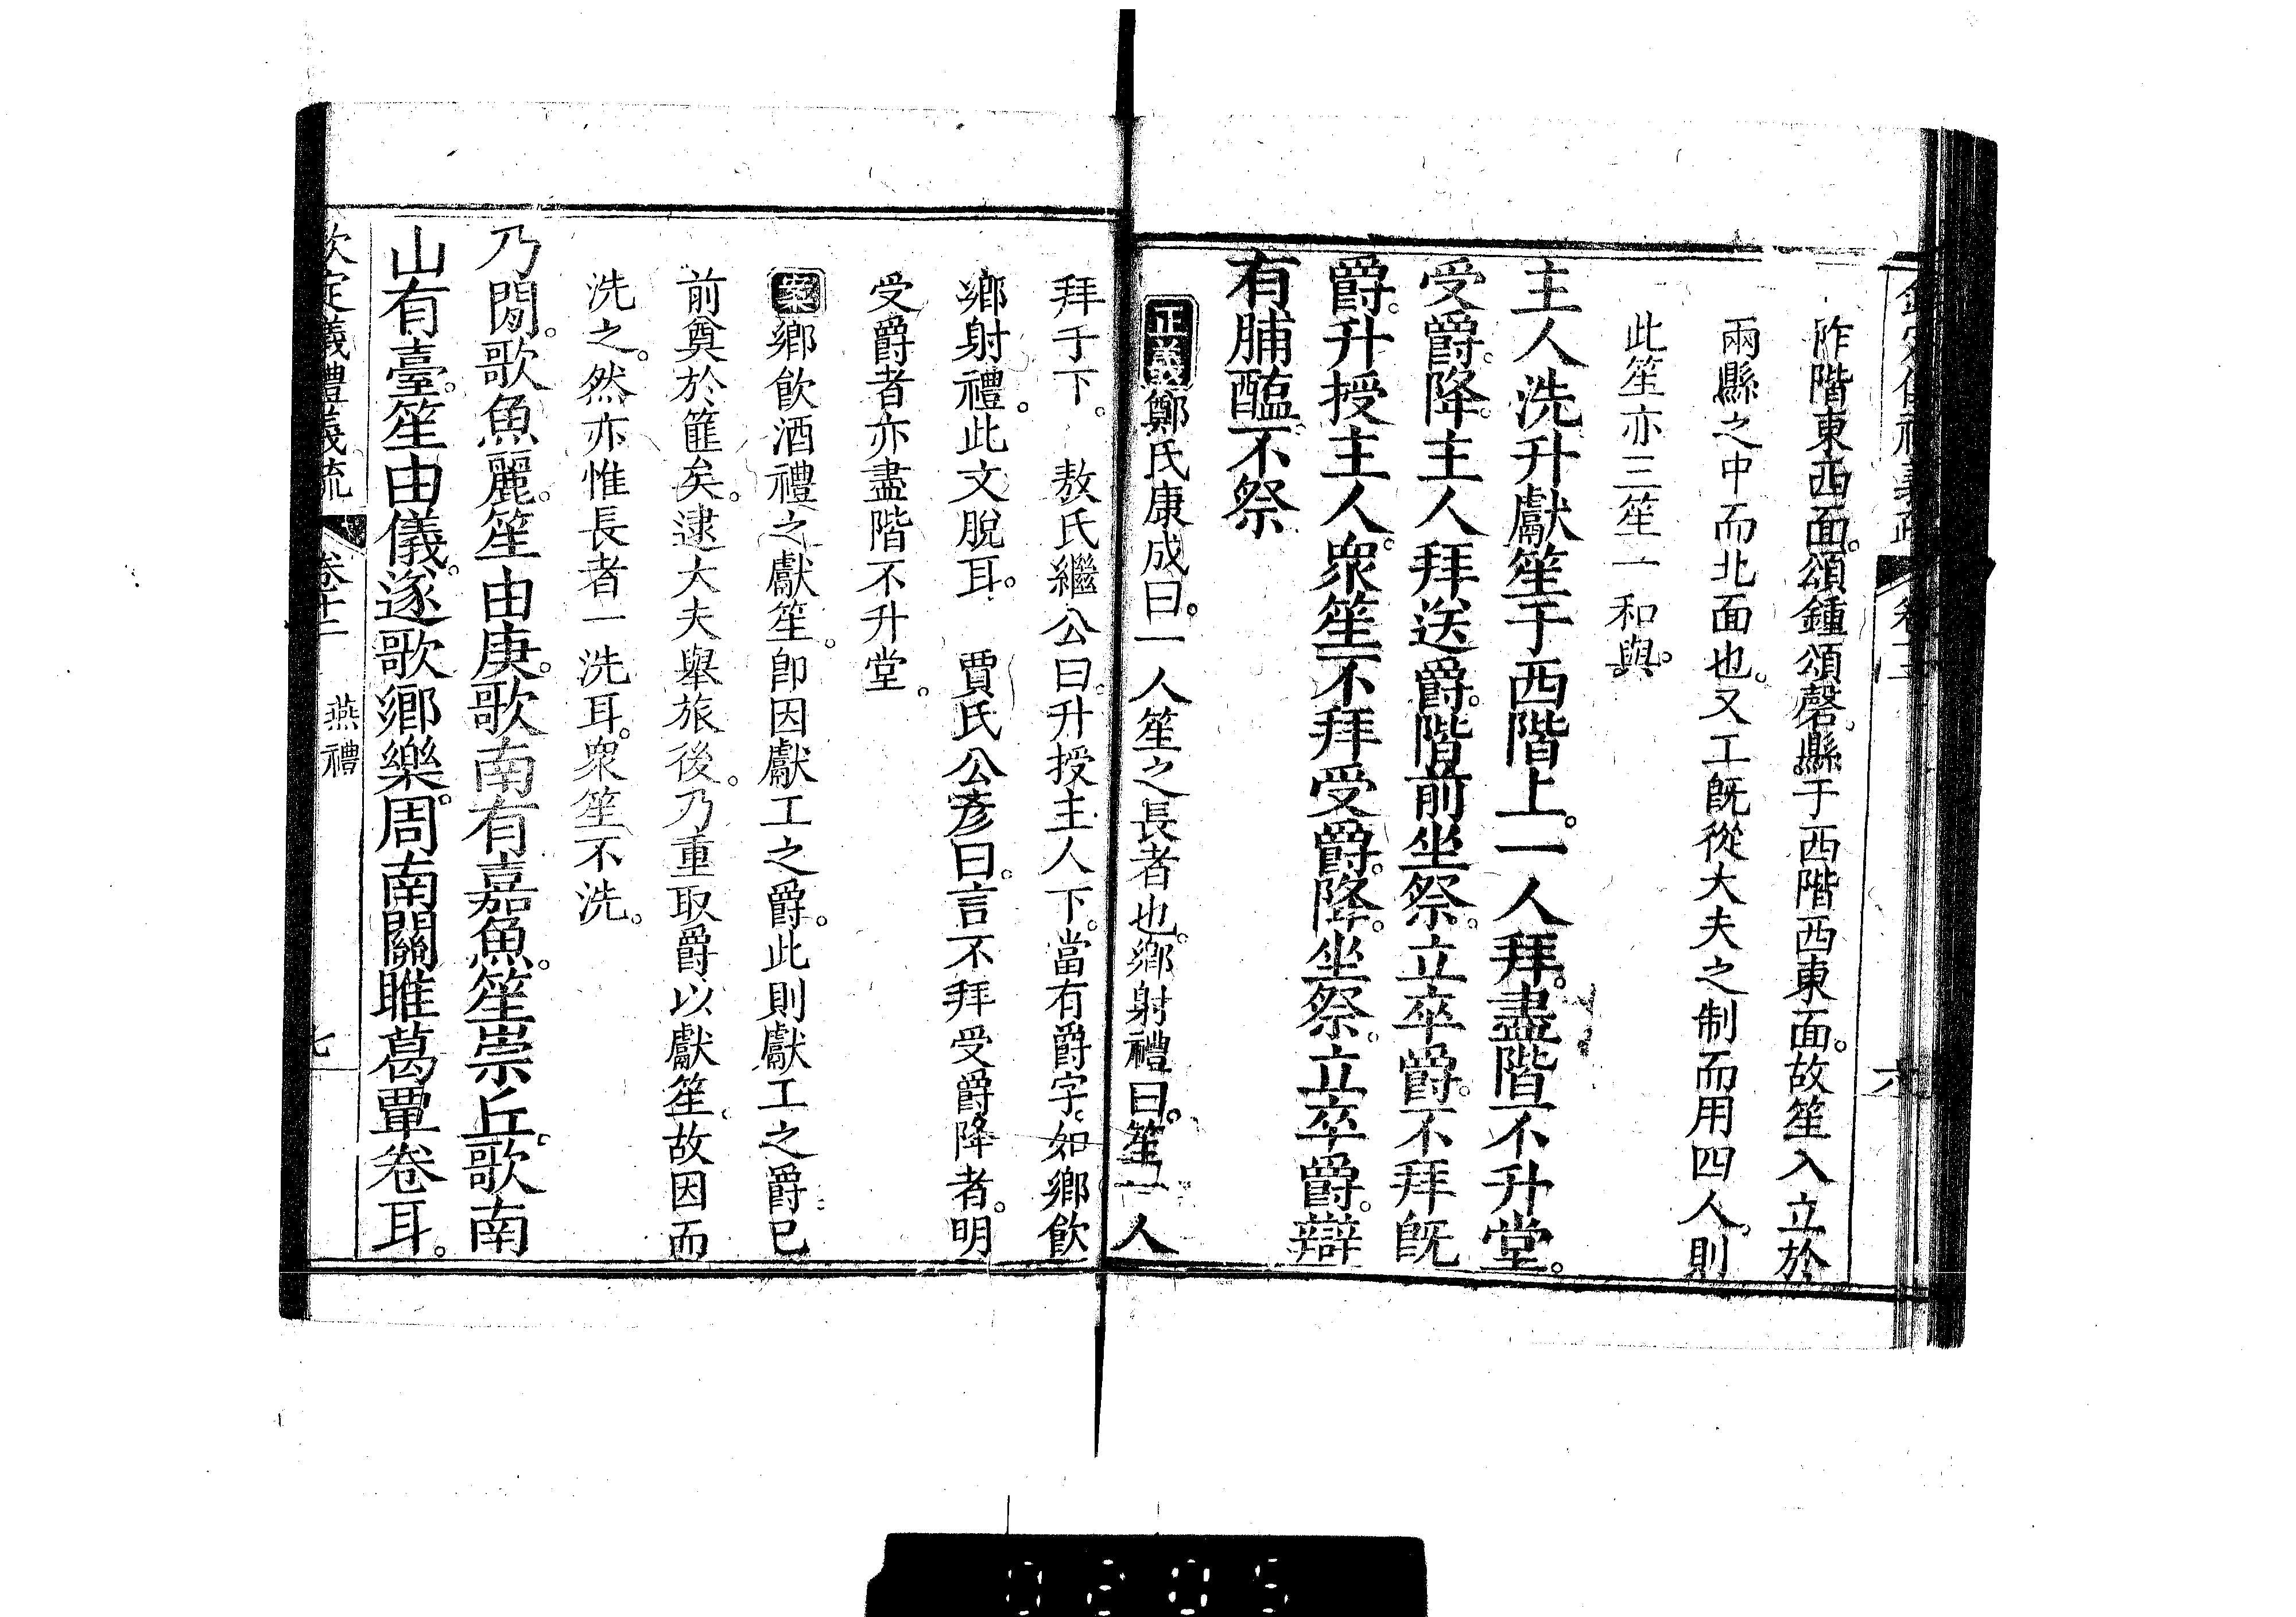 欽定儀禮義疏　卷十二　六
阼階東西面。頌鍾頌磬。縣于西階西東面。故笙入立於
兩縣之中而北面也。又工旣從大夫之制而用四人。則
此笙亦三笙一和與。
主人洗升獻笙于西階上。一人拜。盡階不升堂。
受爵。降。主人拜送爵。階前坐祭。立卒爵。不拜旣
爵。升授主人。衆笙不拜受爵。降。坐祭。立卒爵。辯
有脯醢。不祭
正義鄭氏康成曰。一人笙之長者也。鄉射禮曰。笙一人
拜于下。　敖氏繼公曰。升授主人下。當有爵字。如鄉飲
鄉射禮。此文脫耳。　賈氏公彥曰。言不拜受爵降者。明
受爵者亦盡階不升堂。
案鄉飲酒禮之獻笙。卽因獻工之爵。此則獻工之爵。已
前奠於篚矣。逮大夫舉旅後。乃重取爵以獻笙。故因而
洗之。然亦惟長者一洗耳。衆笙不洗。
乃閒。歌魚麗。笙由庚。歌南有嘉魚。笙崇丘。歌南
山有臺。笙由儀。遂歌鄉樂。周南關雎葛覃卷耳。
欽定儀禮義疏　卷十二　燕禮　七
0205